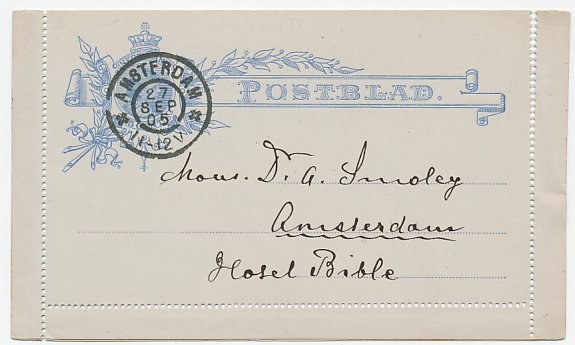 POSTBLAD.
AMSTERDAM
27
SEP
05
11-12V
Mons. Dr. A. Smoley
Amsterdam
Hotel Bible